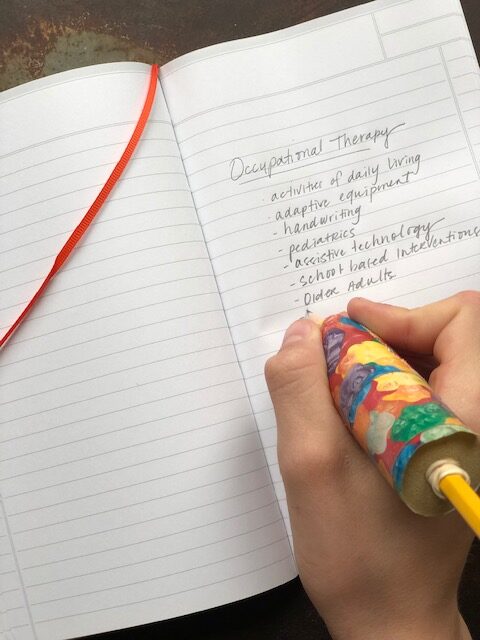 Occupational Therapy
· activities of daily living
· adaptive equipment
- handwriting
- pediatrics
- assistive technology
- school based interventions
- Older Adults